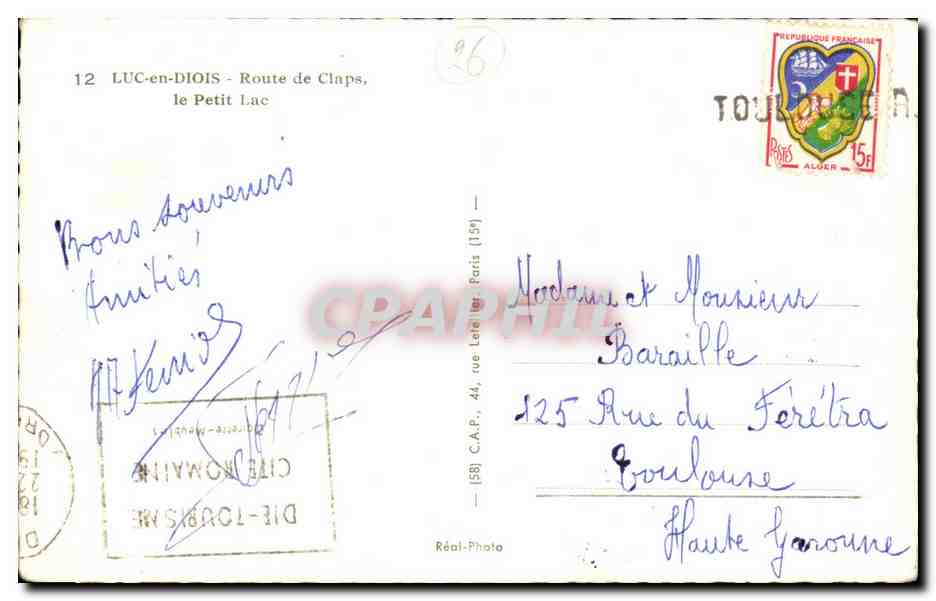 12 LUC-en-DIOIS - Route de Claps,
le Petit Lac
26
REPUBLIQUE FRANÇAISE
POSTES
15F
ALGER
TOULOUSE
Bons souvenirs
Amitiés
CPAPHIL
Madame et Monsieur
Baraille
125 Rue du Férétra
Toulouse
Haute Garonne
(58) C.A.P., 44, rue Letellier, Paris (15e)
DIE-TOURISME
CITÉ ROMAINE
Réal-Photo